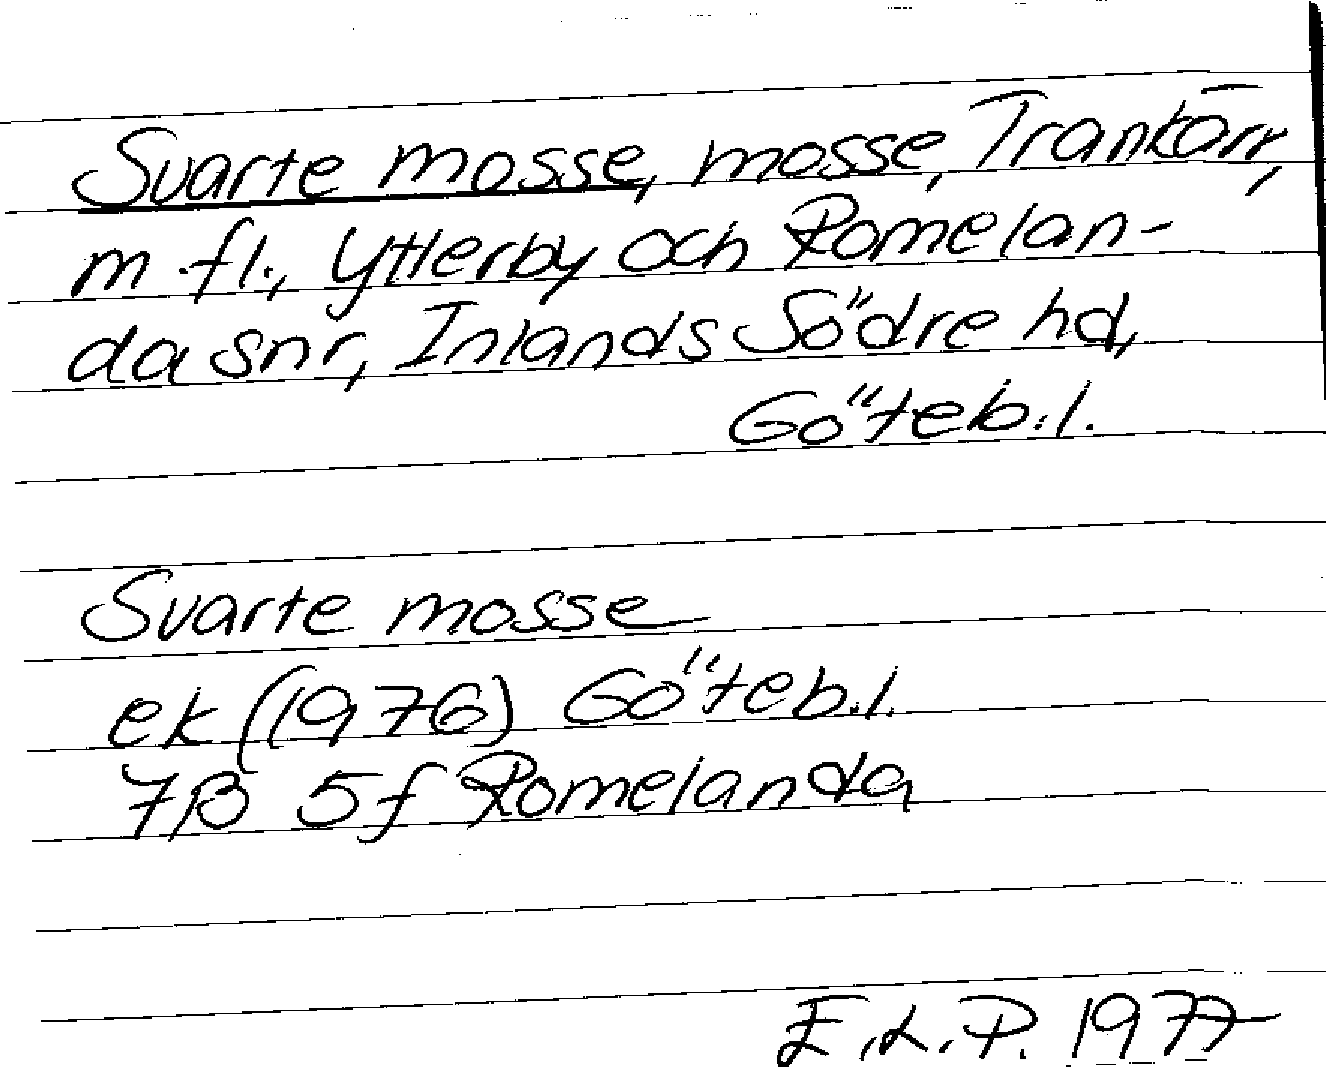 Svarte mosse, mosse, Trankärr,
m.fl., Ytterby och Romelan-
da snr, Inlands Södre hd,
Göteb.l.
Svarte mosse
ek (1976) Göteb.l.
7B 5f Romelanda
E.L.P. 1977